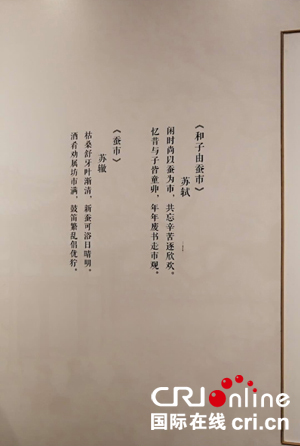 《和子由蚕市》
苏轼
闲时尚以蚕为市，共忘辛苦逐欣欢。
忆昔与子皆童丱，年年废书走市观。
《蚕市》
苏辙
枯桑舒牙叶渐清，新蚕可浴日晴明。
酒肴劝属坊市满，鼓笛繁乱倡优狞。
CRIonline
国际在线 cri.cn